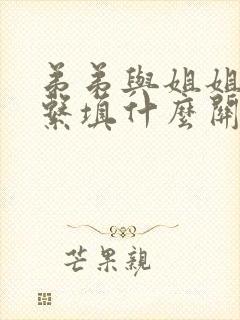 弟弟與姐姐
繫填什麼關
芒果親